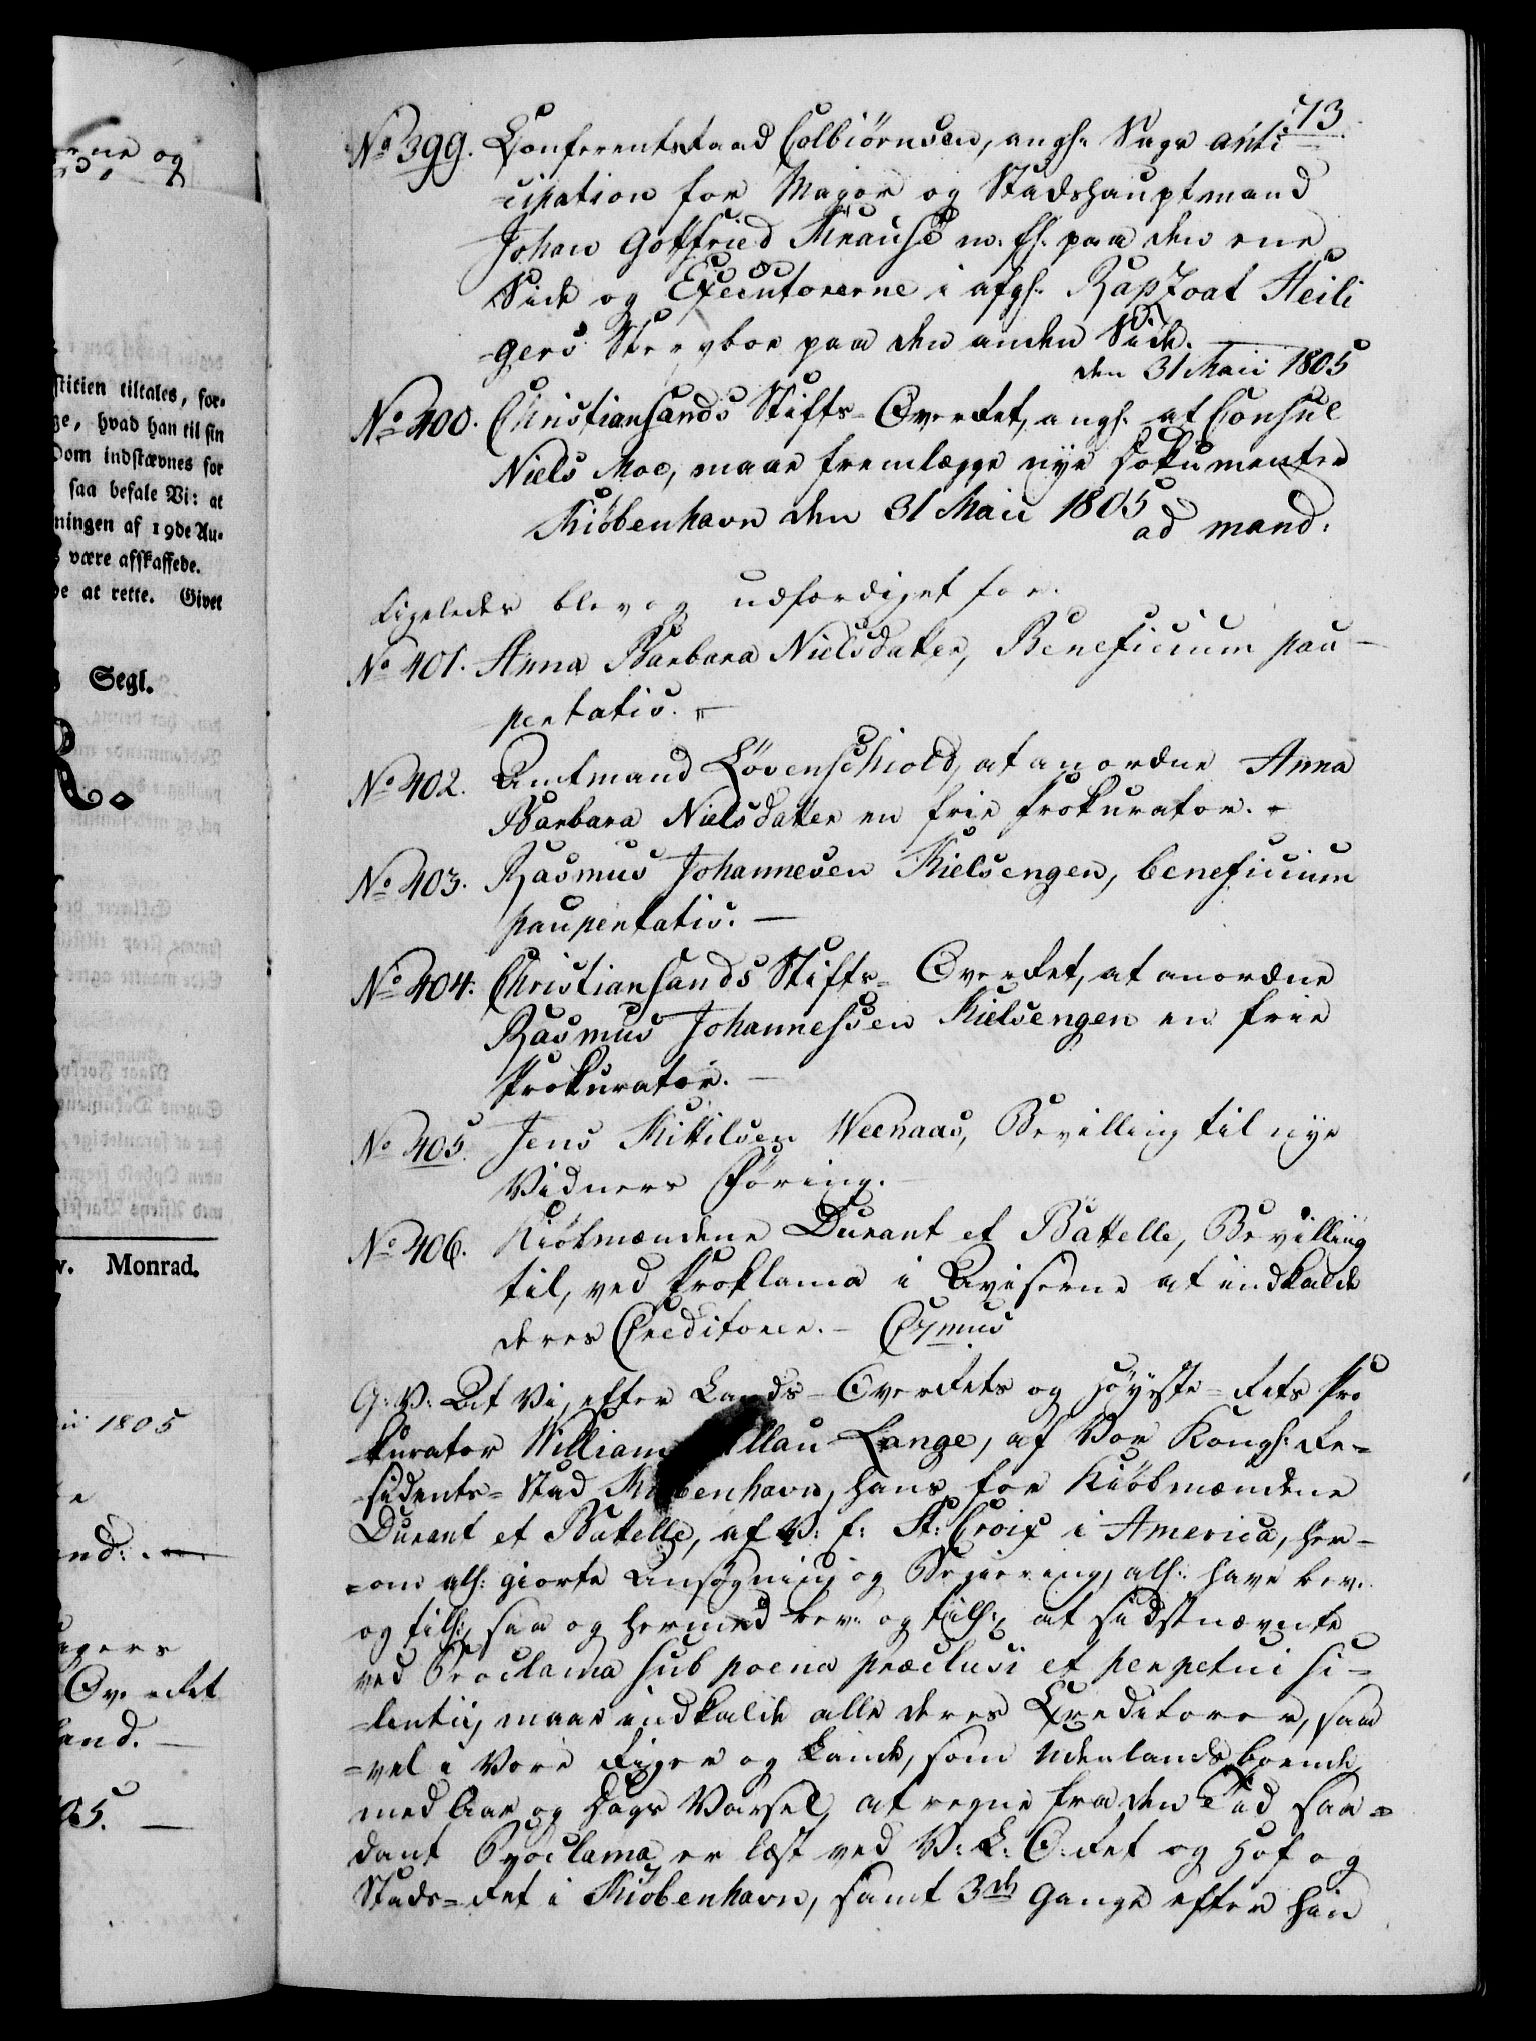 73.
No 399. Conferentsraad Colbiørnsen, angh. Sags anti
=cipation for Major og Stadshauptmand
Johan Gottfried Krause m. fl. paa den ene
Side og Executorerne i afgh. Raptoat Heili
=gers Sterv boe paa den anden Side.
den 31 Maii 1805
No 400. Christiansands Stifts-Overret, angh. at Consul
Niels Moe, maae fremlægge nye Dokumenter
Kiøbenhavn den 31 Maii 1805
ad mand:
Ligeledes blev og udfærdiget for.
No 401. Anna Barbara Nielsdatter, Beneficium pau-
pertatis. —
No 402. Amtmand Løvenschiold, at anordne Anna
Barbara Nielsdatter en frie Prokurator. -
No 403. Rasmus Johannesen Kielsengen, beneficium
paupertatis. —
No 404. Christiansands Stifts= Overret, at anordne
Rasmus Johannessen Kielsengen en frie
Prokurator. —
No 405. Jens Kittilsen Weenaas, Bevilling til nye
Vidners Føring. —
No 406. Kiøbmændene Durant et Battelle, Bevilling
til, ved Proklama i Aviserne at indkalde
deres Creditorer. —
G: V: At Vi, efter Lands-Overrets og Høyeste=Rets Pro
kurator William llau Lange, af Vor Kongl: Re=
sidents= Stad Kiøbenhavn, hans for Kiøbmændene
Durant et Battelle, af V: E: St: Croix i America, her=
=om alh: giorte Ansøgning og Begiering, alh: have bev:
og tilh:, saa og hermed bev: og tilh:, at sidstnævnte
ved Proclama sub poena præclusi et perpetui si=
=lentii, maae indkalde alle deres Kreditorer, saa
=vel i Vore Riger og Lande, som Udenlands boende,
med Aar og Dags Varsel, at regne fra den Tid saa=
dant Proclama er læst ved V: L: O: Ret og Hof og
Stads=Ret i Kiøbenhavn, samt 3de Gange efter hin
og
stitien tiltales, for=
ge, hvad han til sin
Dom indstævnes for
saa befale Vi: at
ningen af 19de Au=
være afskaffede.
at rette. Givet
Segl.
R.
Monrad.
1805